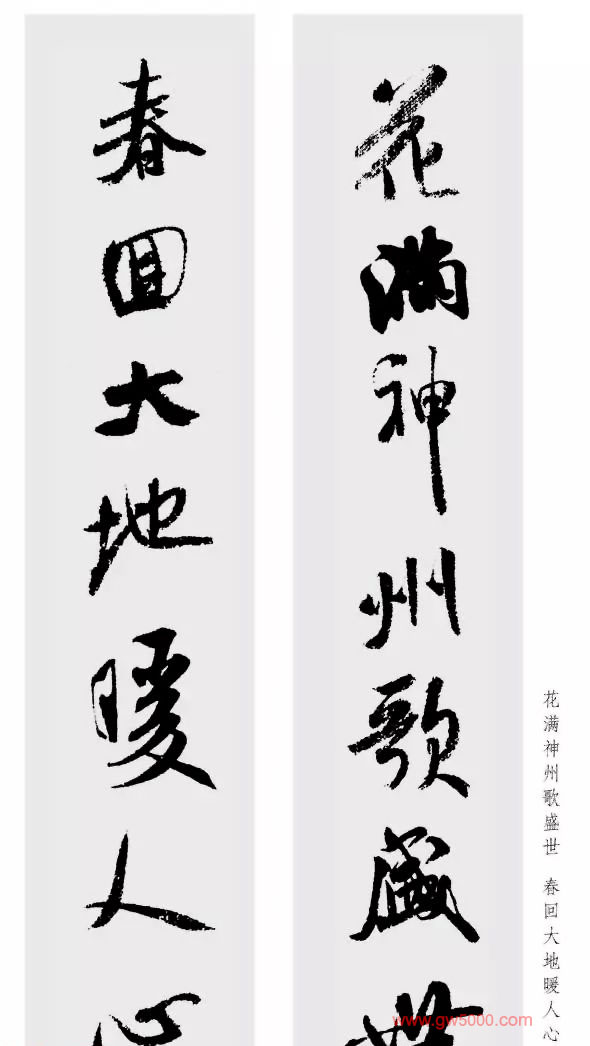 花满神州歌盛世
春回大地暖人心
花满神州歌盛世 春回大地暖人心
www.gw5000.com